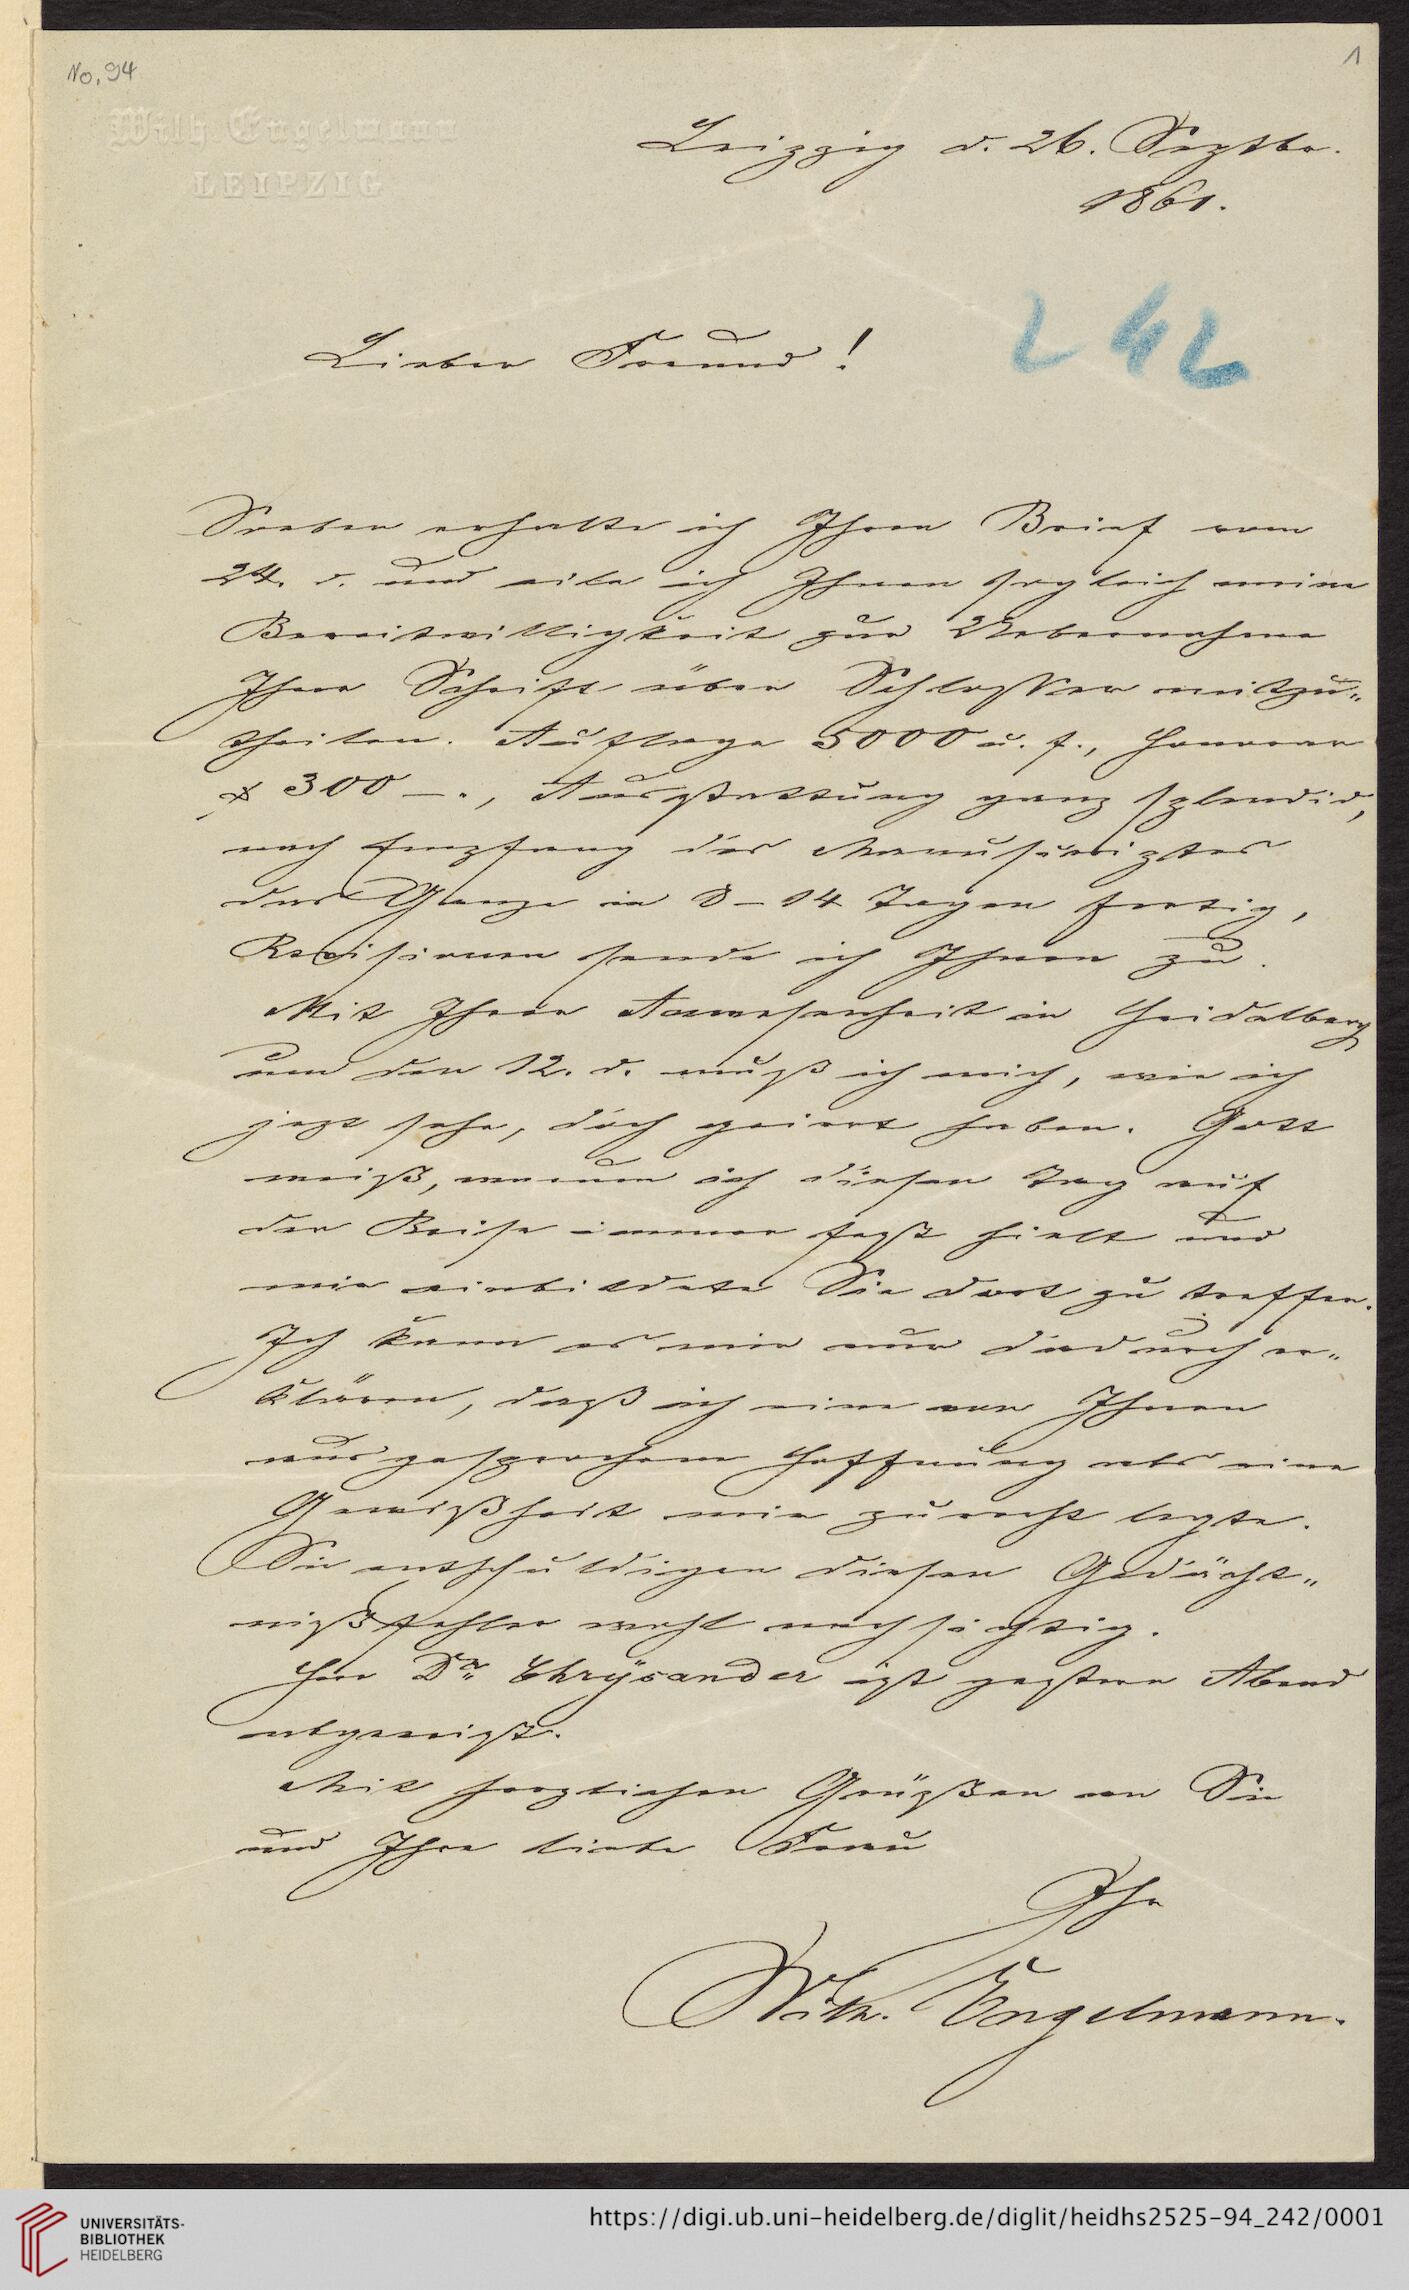 No. 94
1
Wilh Engelmann
LEIPZIG
Leipzig d. 26. Septbr.
1861.
242
Lieber Freund!
Soeben erhalte ich Ihren Brief vom
24. d. und eile ich Ihnen sogleich meine
Bereitwilligkeit zur Uebernahme
Ihrer Schrift über Schlosser mitzu„
theilen. Auflage 5000 u. f., Honorar
300 —., Ausstattung ganz splendid,
nach Empfang des Manuscriptes
das Ganze in 8–14 Tagen fertig,
Revisionen sende ich Ihnen zu.
Mit Ihrer Anwesenheit in Heidelberg
um den 12. d. muß ich mich, wie ich
jezt sehe, doch geirrt haben. Gott
weiß, warum ich diesen Tag auf
der Reise immer fest hielt und
mir einbildete Sie dort zu treffen.
Ich kann es mir nur dadurch er„
klären, daß ich eine von Ihnen
ausgesprochene Hoffnung als eine
Gewißheit mir zurecht legte.
Sie entschuldigen diesen Gedächt„
nißfehler wohl nachsichtig.
Herr Dr. Chrysander ist gestern Abend
abgereist.
Mit herzlichen Grüßen an Sie
und Ihre liebe Frau
Ihr
Wilh. Engelmann.
UNIVERSITÄTS-
BIBLIOTHEK
HEIDELBERG
https://digi.ub.uni-heidelberg.de/diglit/heidhs2525-94_242/0001